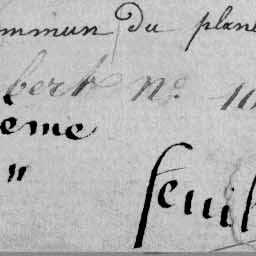 ommun du plan
bert n° 10
eme
"
feuil